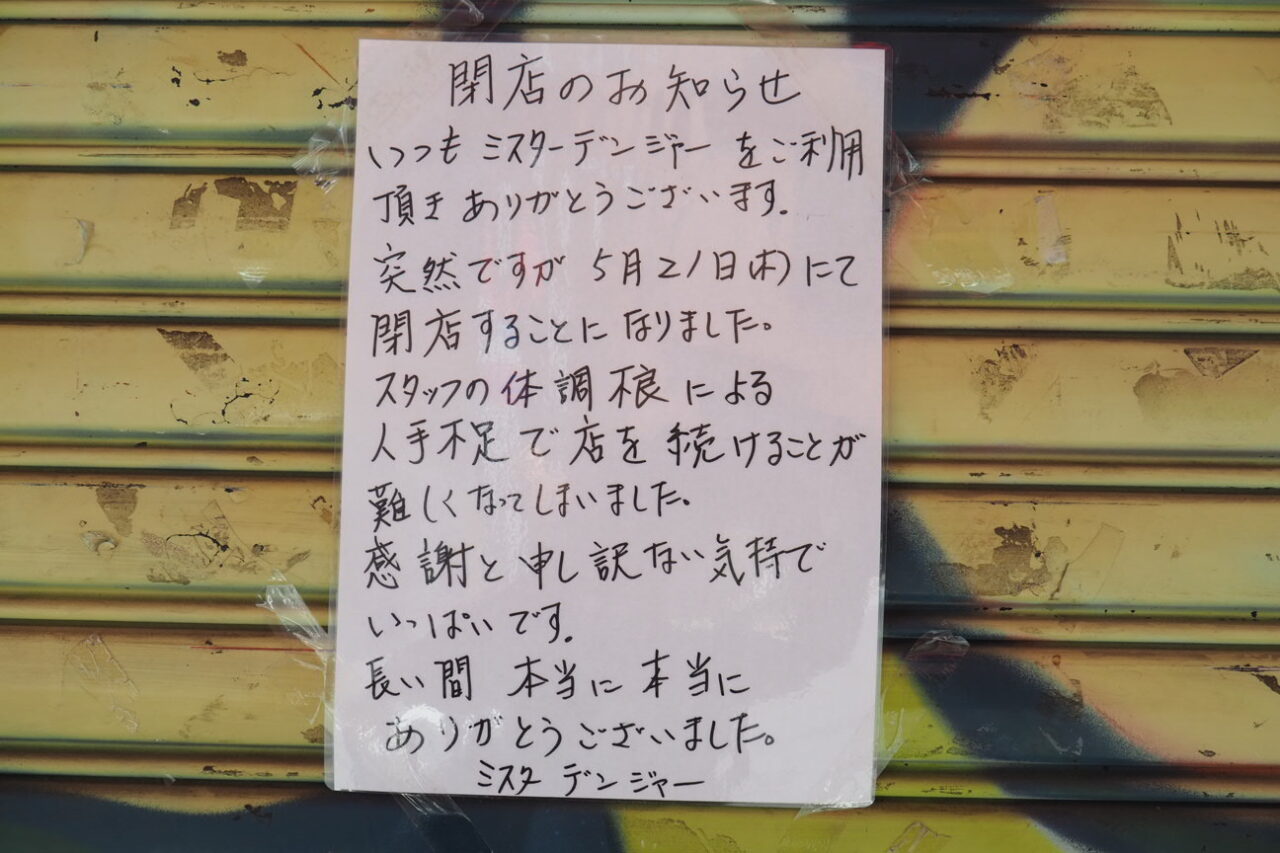 閉店のお知らせ
いつもミスターデンジャーをご利用
頂きありがとうございます.
突然ですが5月21日(木)にて
閉店することになりました。
スタッフの体調不良による
人手不足で店を続けることが
難しくなってしまいました。
感謝と申し訳ない気持で
いっぱいです.
長い間 本当に本当に
ありがとうございました。
ミスタデンジャー